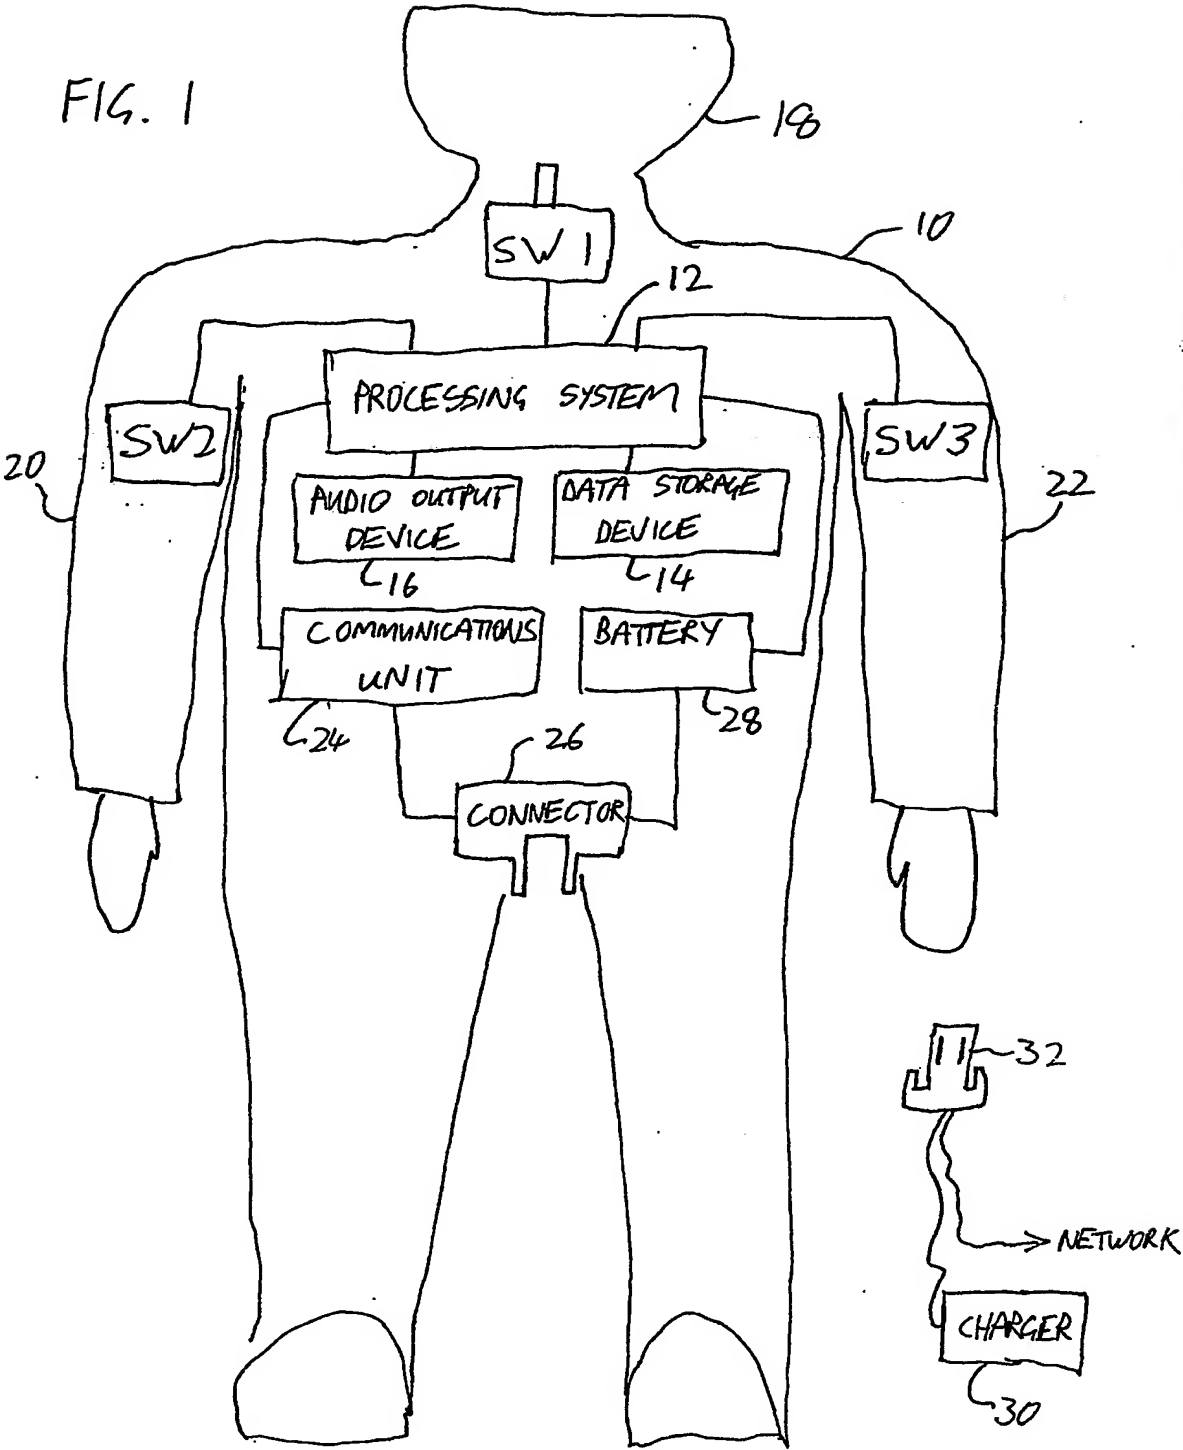 FIG. 1
18
10
SW1
12
PROCESSING SYSTEM
SW2
SW3
20
22
AUDIO OUTPUT
DEVICE
DATA STORAGE
DEVICE
16
14
COMMUNICATIONS
UNIT
BATTERY
24
28
26
CONNECTOR
32
NETWORK
CHARGER
30